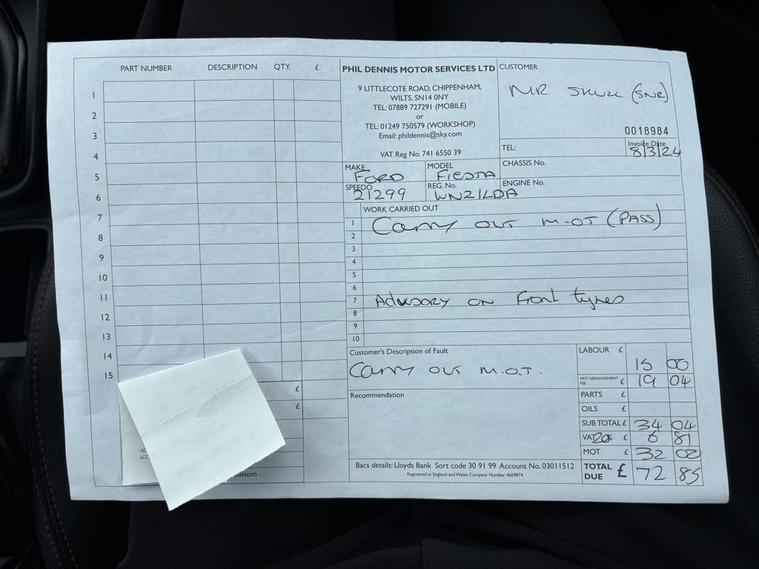 PART NUMBER DESCRIPTION QTY. £
1
2
3
4
5
6
7
8
9
10
11
12
13
14
15
£
£
PHIL DENNIS MOTOR SERVICES LTD
9 LITTLECOTE ROAD, CHIPPENHAM,
WILTS. SN14 0NY
TEL: 07889 727291 (MOBILE)
or
TEL: 01249 750579 (WORKSHOP)
Email: phildennis@sky.com
VAT Reg No. 741 6550 39
CUSTOMER
MR (SNR)
0018984
TEL:
Invoice Date
8/3/24
MAKE MODEL CHASSIS No.
FORD FIESTA
SPEEDO REG. No. ENGINE No.
21299 WN21LDA
WORK CARRIED OUT
1 Carry out M-OT (PASS)
2
3
4
5
6
7 Advisory on front tyres
8
9
10
Customer's Description of Fault
Carry out M.O.T.
Recommendation
LABOUR £ 15 00
MOT ARRANGEMENT FEE £ 19 04
PARTS £
OILS £
SUB TOTAL £ 34 04
VAT 20% £ 6 81
MOT 32 00
TOTAL DUE £ 72 85
Bacs details: Lloyds Bank Sort code 30 91 99 Account No. 03011512
Registered in England and Wales Company Number 4669874